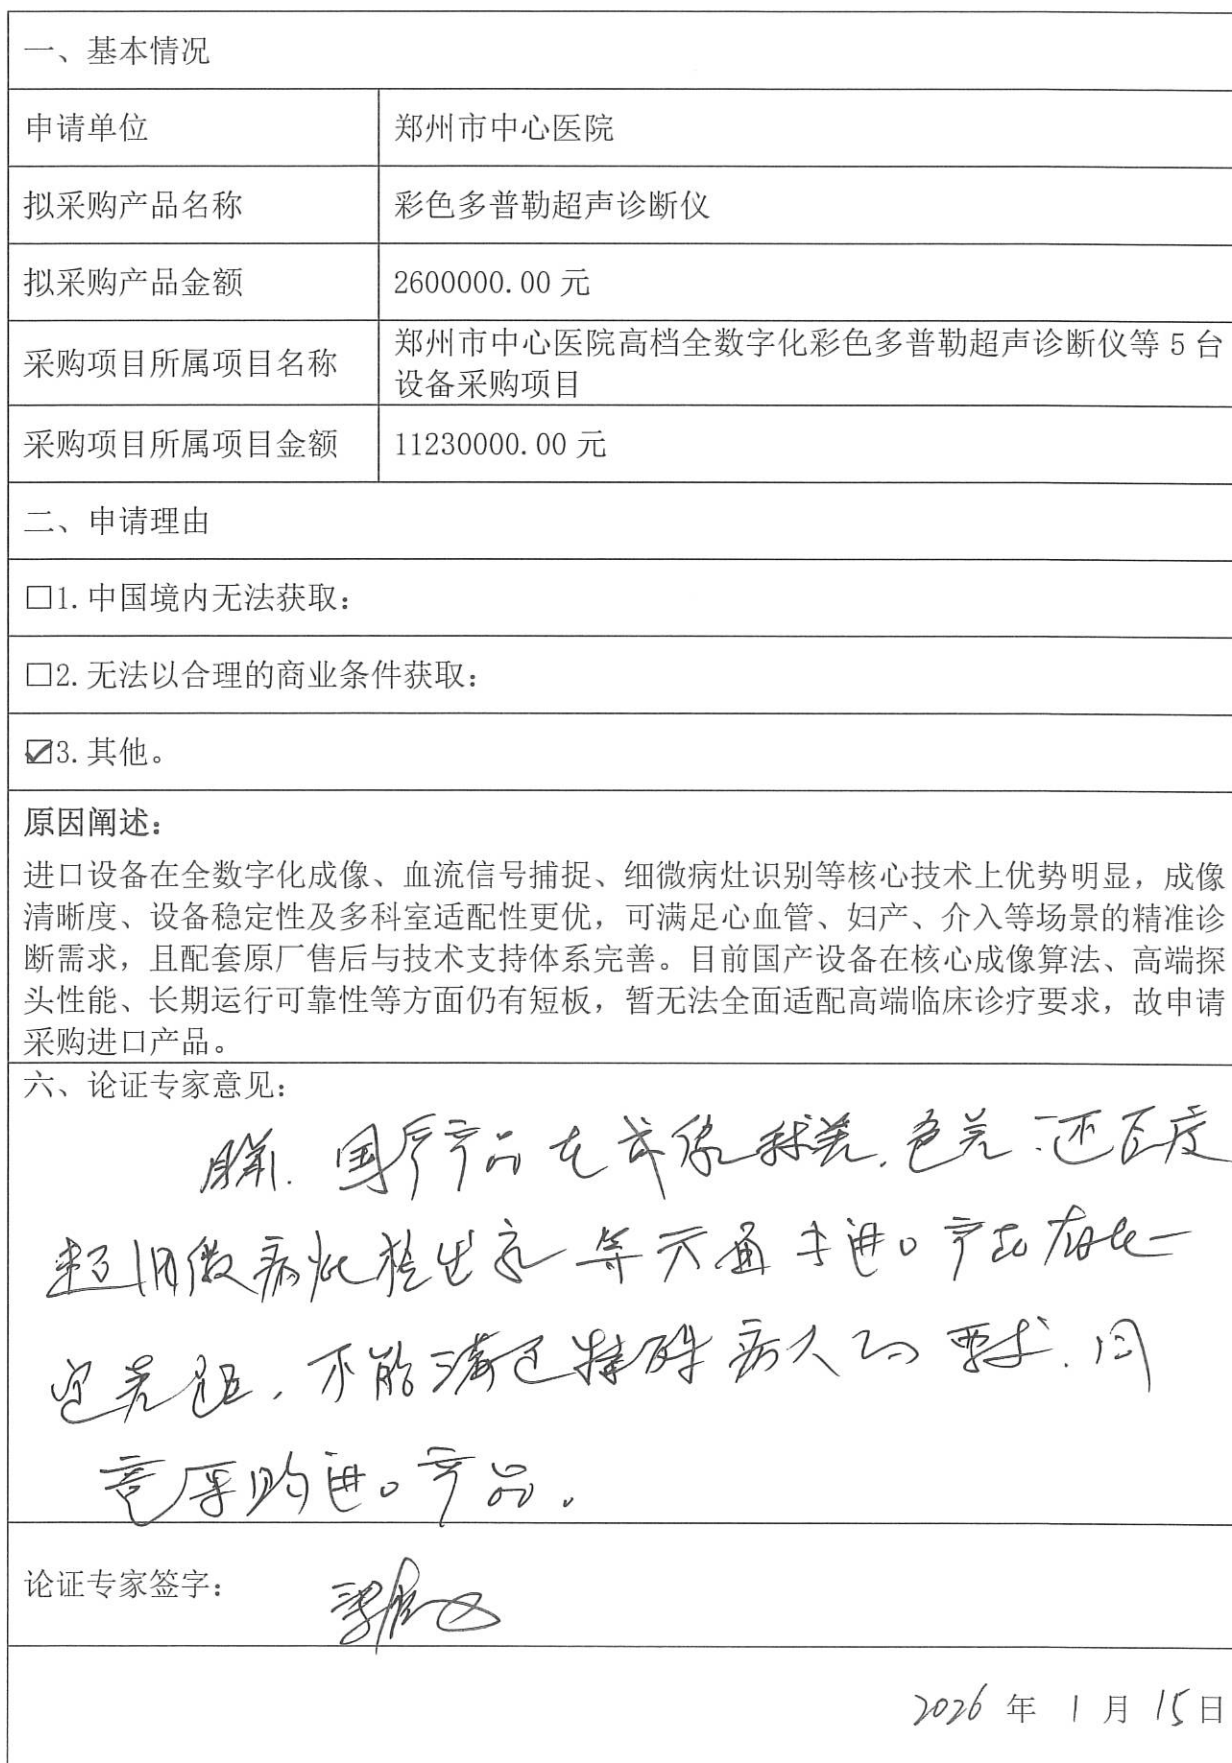 一、基本情况
申请单位 郑州市中心医院
拟采购产品名称 彩色多普勒超声诊断仪
拟采购产品金额 2600000.00 元
采购项目所属项目名称 郑州市中心医院高档全数字化彩色多普勒超声诊断仪等 5 台
设备采购项目
采购项目所属项目金额 11230000.00 元
二、申请理由
□1.中国境内无法获取：
□2.无法以合理的商业条件获取：
☑3.其他。
原因阐述：
进口设备在全数字化成像、血流信号捕捉、细微病灶识别等核心技术上优势明显，成像
清晰度、设备稳定性及多科室适配性更优，可满足心血管、妇产、介入等场景的精准诊
断需求，且配套原厂售后与技术支持体系完善。目前国产设备在核心成像算法、高端探
头性能、长期运行可靠性等方面仍有短板，暂无法全面适配高端临床诊疗要求，故申请
采购进口产品。
六、论证专家意见：
国产产品在成像 色差 还
微病灶检出率等方面与进口产品存在一
定差距，不能满足特殊病人的要求，同
意采购进口产品。
论证专家签字：
2026 年 1 月 15 日